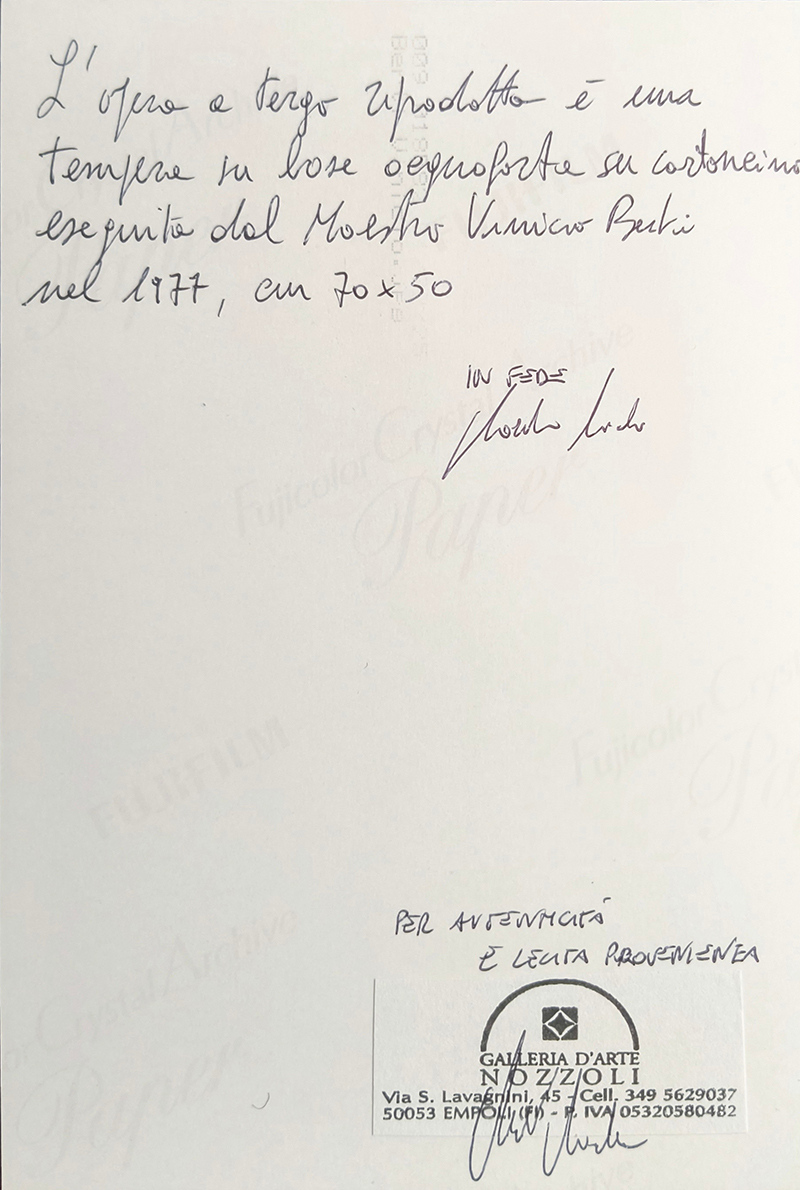 L'opera a tergo riprodotta è una
tempera su base acquaforte su cartoncino
eseguita dal Maestro Vinicio Berti
nel 1977, cm 70x50
IN FEDE
PER AUTENTICITÀ
E LECITA PROVENIENZA
GALLERIA D'ARTE
NOZZOLI
Via S. Lavagnini, 45 - Cell. 349 5629037
50053 EMPOLI (FI) - P. IVA 05320580482
Fujicolor Crystal Archive
Paper
FUJIFILM
Fujicolor Crystal
Crystal Archive
Paper